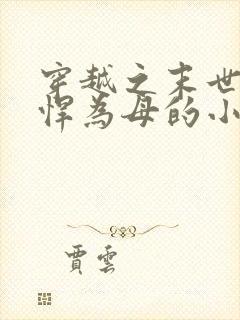 穿越之末世
悍为母的小
贾云